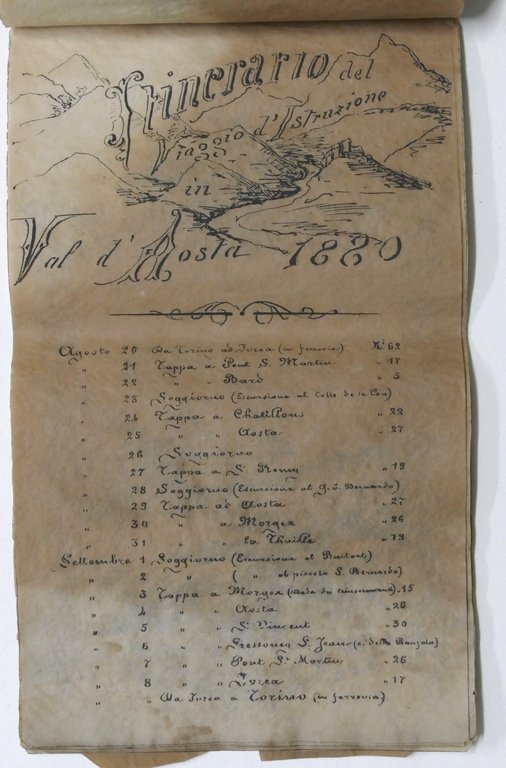 Itinerario del
Viaggio d'Istruzione
in
Val d'Aosta 1880
Agosto 20 Da Torino ad Ivrea (in ferrovia) K.i 62
" 21 Tappa a Pont S. Martin " 17
" 22 " " Bard " 5
" 23 Soggiorno (Escursione al Colle de la Cou)
" 24 Tappa a Chatillons " 22
" 25 " " Aosta " 27
" 26 Soggiorno
" 27 Tappa a S. Remy " 19
" 28 Soggiorno (Escursione al G. S. Bernardo)
" 29 Tappa ad Aosta " 27
" 30 " a Morgex " 26
" 31 " " la Thuille " 19
Settembre 1 Soggiorno (Escursione al Ruitort)
" 2 " ( " al piccolo S. Bernardo)
" 3 Tappa a Morgex (strada du " 15
" 4 " " Aosta " 26
" 5 " " S. Vincent " 30
" 6 " " Gressoney S. Jean (C. della Ranzola)
" 7 " " Pont S. Martin " 26
" 8 " " Ivrea " 17
" " Da Ivrea a Torino (in ferrovia)